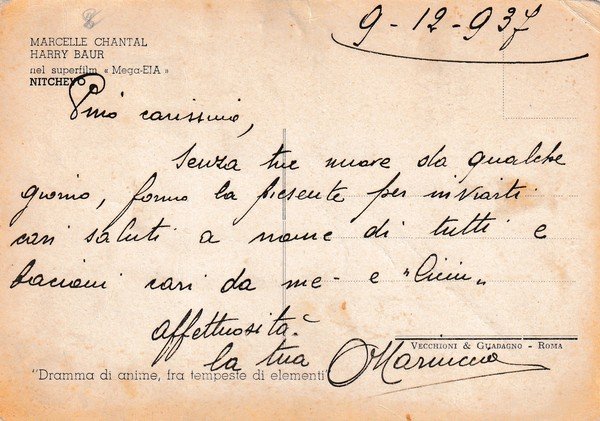 9-12-937
MARCELLE CHANTAL
HARRY BAUR
nel superfilm « Mega-EIA »
NITCHEVO
Pino carissimo,
Senza tue nuove da qualche
giorno, formo la presente per inviarti
cari saluti a nome di tutti e
bacioni cari da me - e "Cicin"
affettuosità.
VECCHIONI & GUADAGNO - ROMA
la tua Mariuccia
"Dramma di anime, fra tempeste di elementi